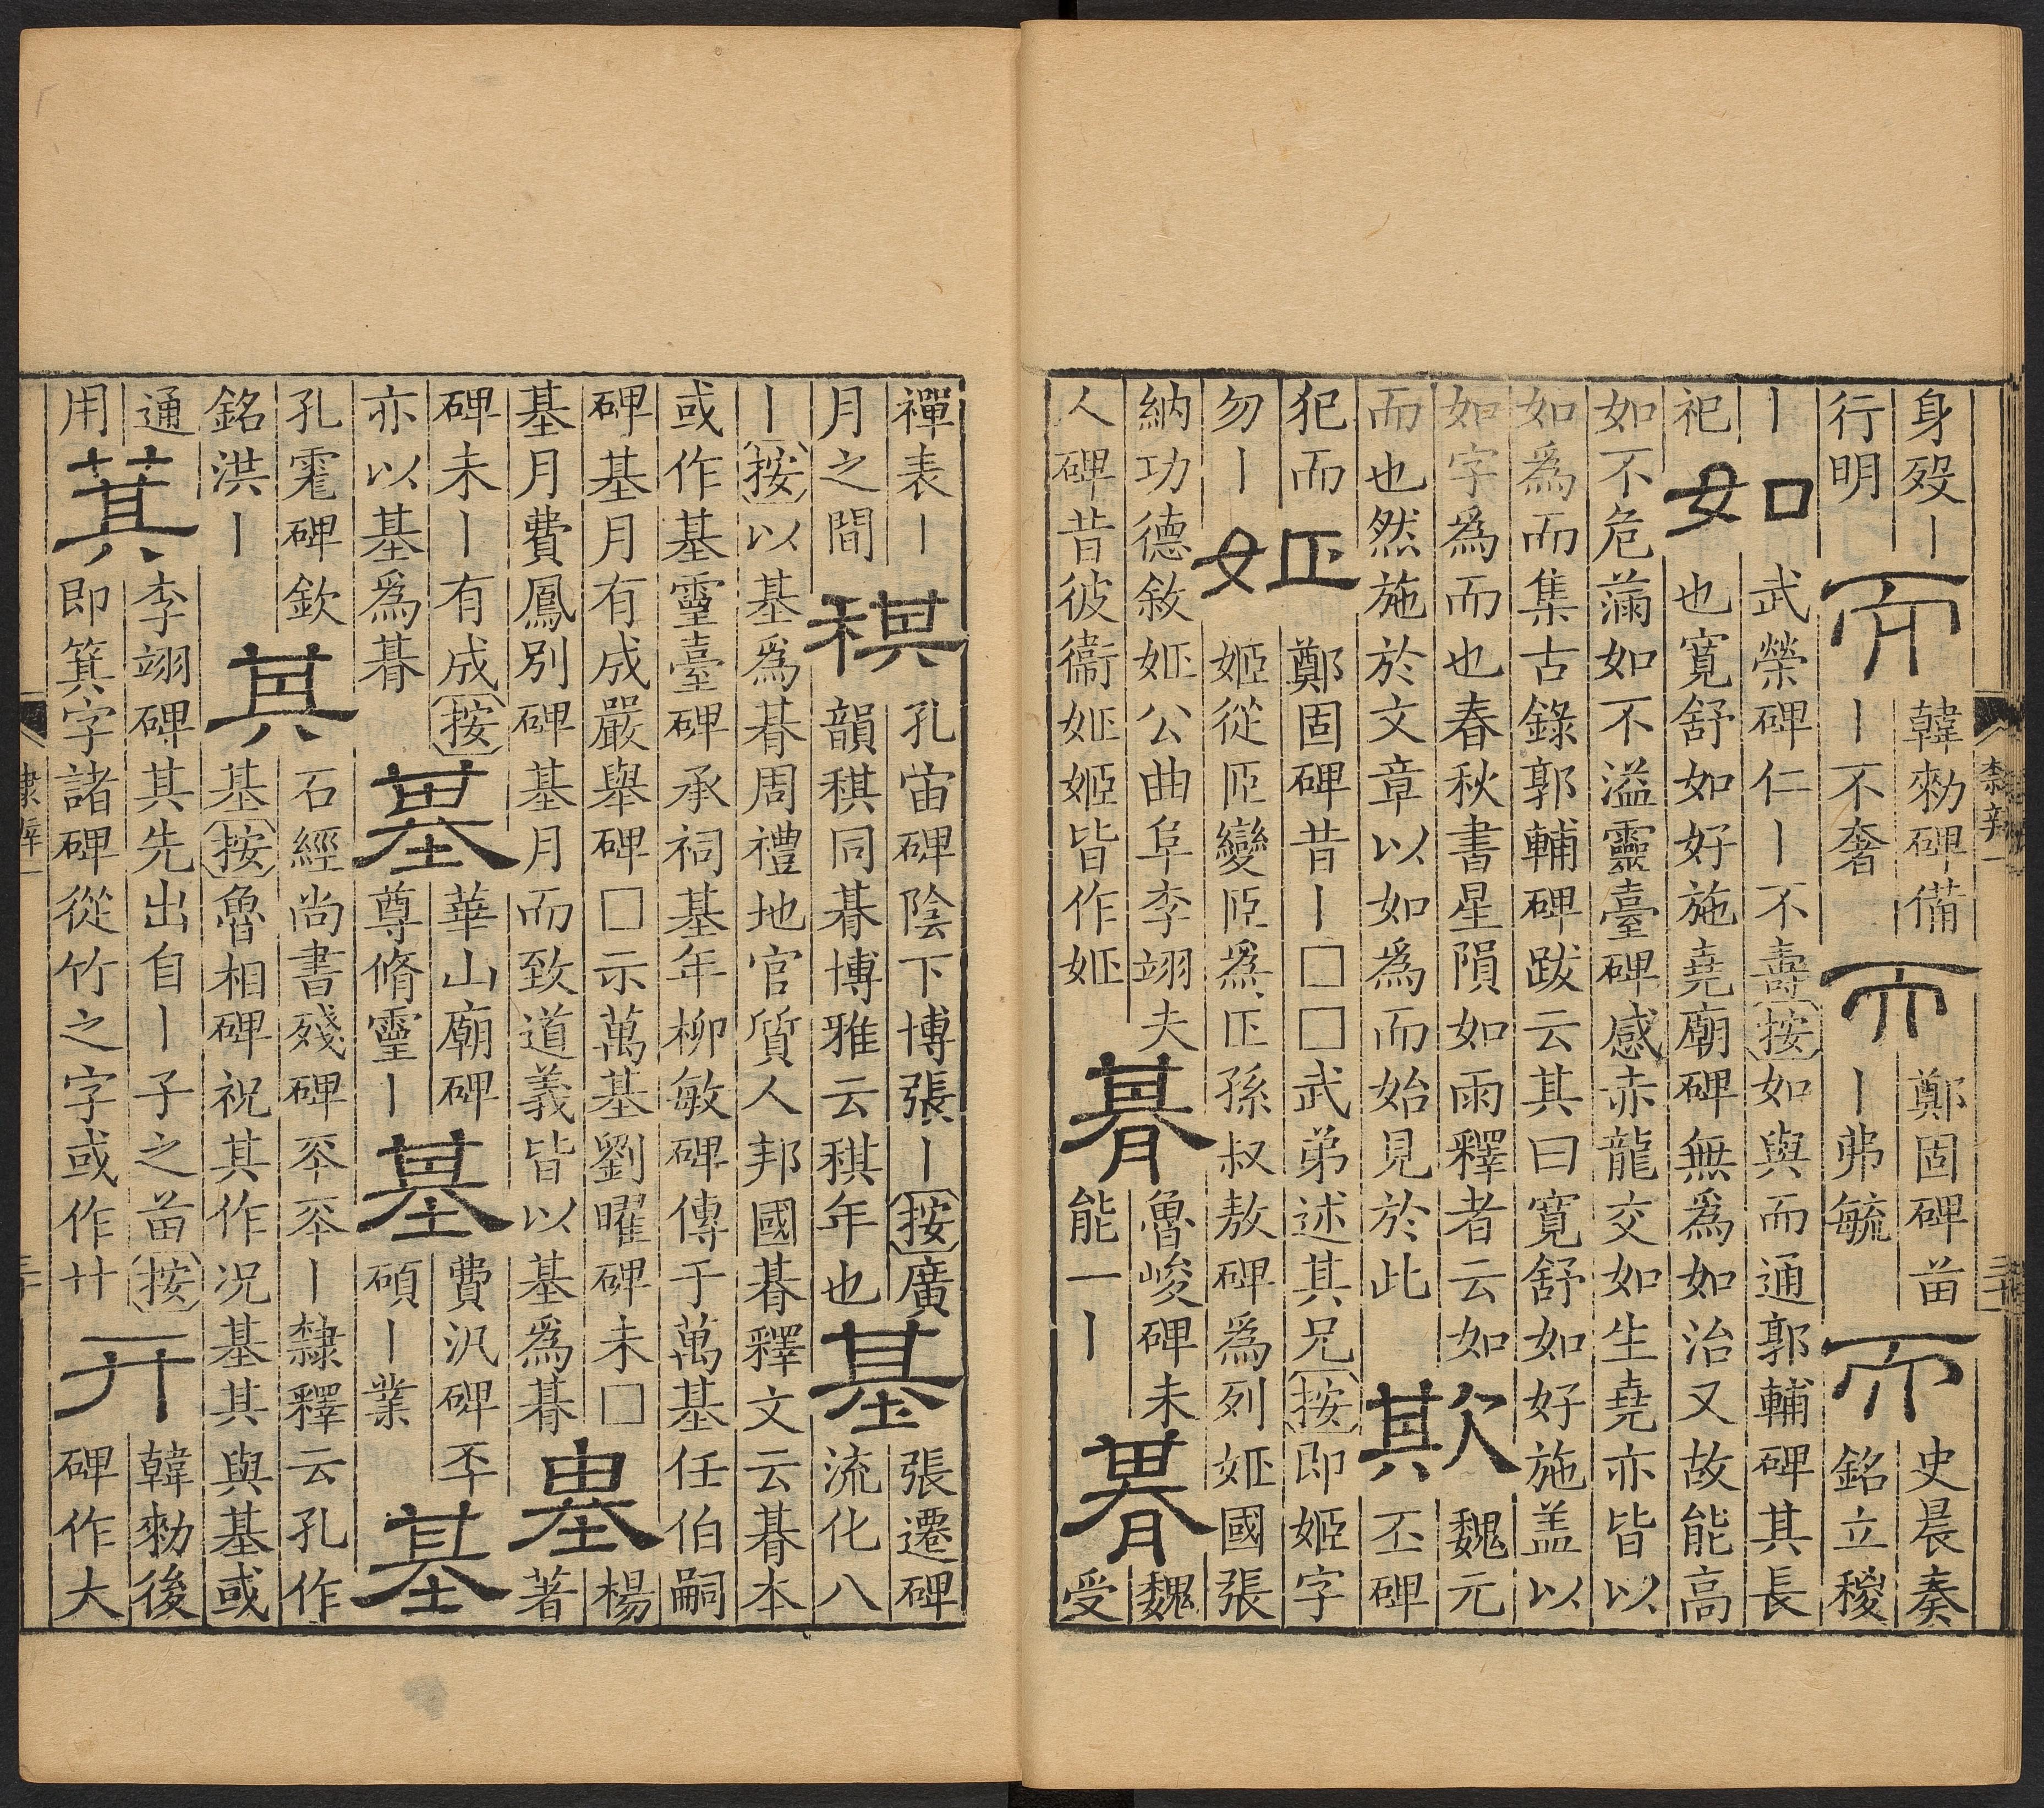 隸辨一
三十
身歿丨
行明
而
韓勑碑備
丨不奢
而
鄭固碑苗
丨弗毓
而
史晨奏
銘立稷
丨
祀
如
武榮碑仁丨不壽按如與而通郭輔碑其長
也寬舒如好施堯廟碑無爲如治又故能高
如不危滿如不溢靈臺碑感赤龍交如生堯亦皆以
如爲而集古錄郭輔碑跋云其曰寬舒如好施盖以
如字爲而也春秋書星隕如雨釋者云如
而也然施於文章以如爲而始見於此
欺
魏元
丕碑
犯而
勿丨
姖
鄭固碑昔丨□□武弟述其兄按即姬字
姬從𦣝變𦣝爲𠃑孫叔敖碑爲列姖國張
納功德敘姖公曲阜李翊夫
人碑昔彼衞姖姬皆作姖
朞
魯峻碑未
能一丨
朞
魏
受
禪表丨
月之間
稘
孔宙碑陰下博張丨按廣
韻稘同朞博雅云稘年也
基
張遷碑
流化八
丨按以基爲朞周禮地官質人邦國朞釋文云朞本
或作基靈臺碑承祠基年柳敏碑傳于萬基任伯嗣
碑基月有成嚴舉碑□示萬基劉曜碑未□
基月費鳳別碑基月而致道義皆以基爲朞
基
楊
著
碑未丨有成按
亦以基爲朞
基
華山廟碑
尊脩靈丨
基
費汎碑丕
碩丨業
基
孔霔碑欽
銘洪丨
其
石經尚書殘碑㔻㔻丨隸釋云孔作
基按魯相碑祝其作况基其與基或
通
用
萁
李翊碑其先出自丨子之苗按
即箕字諸碑從竹之字或作卄
丌
韓勑後
碑作大